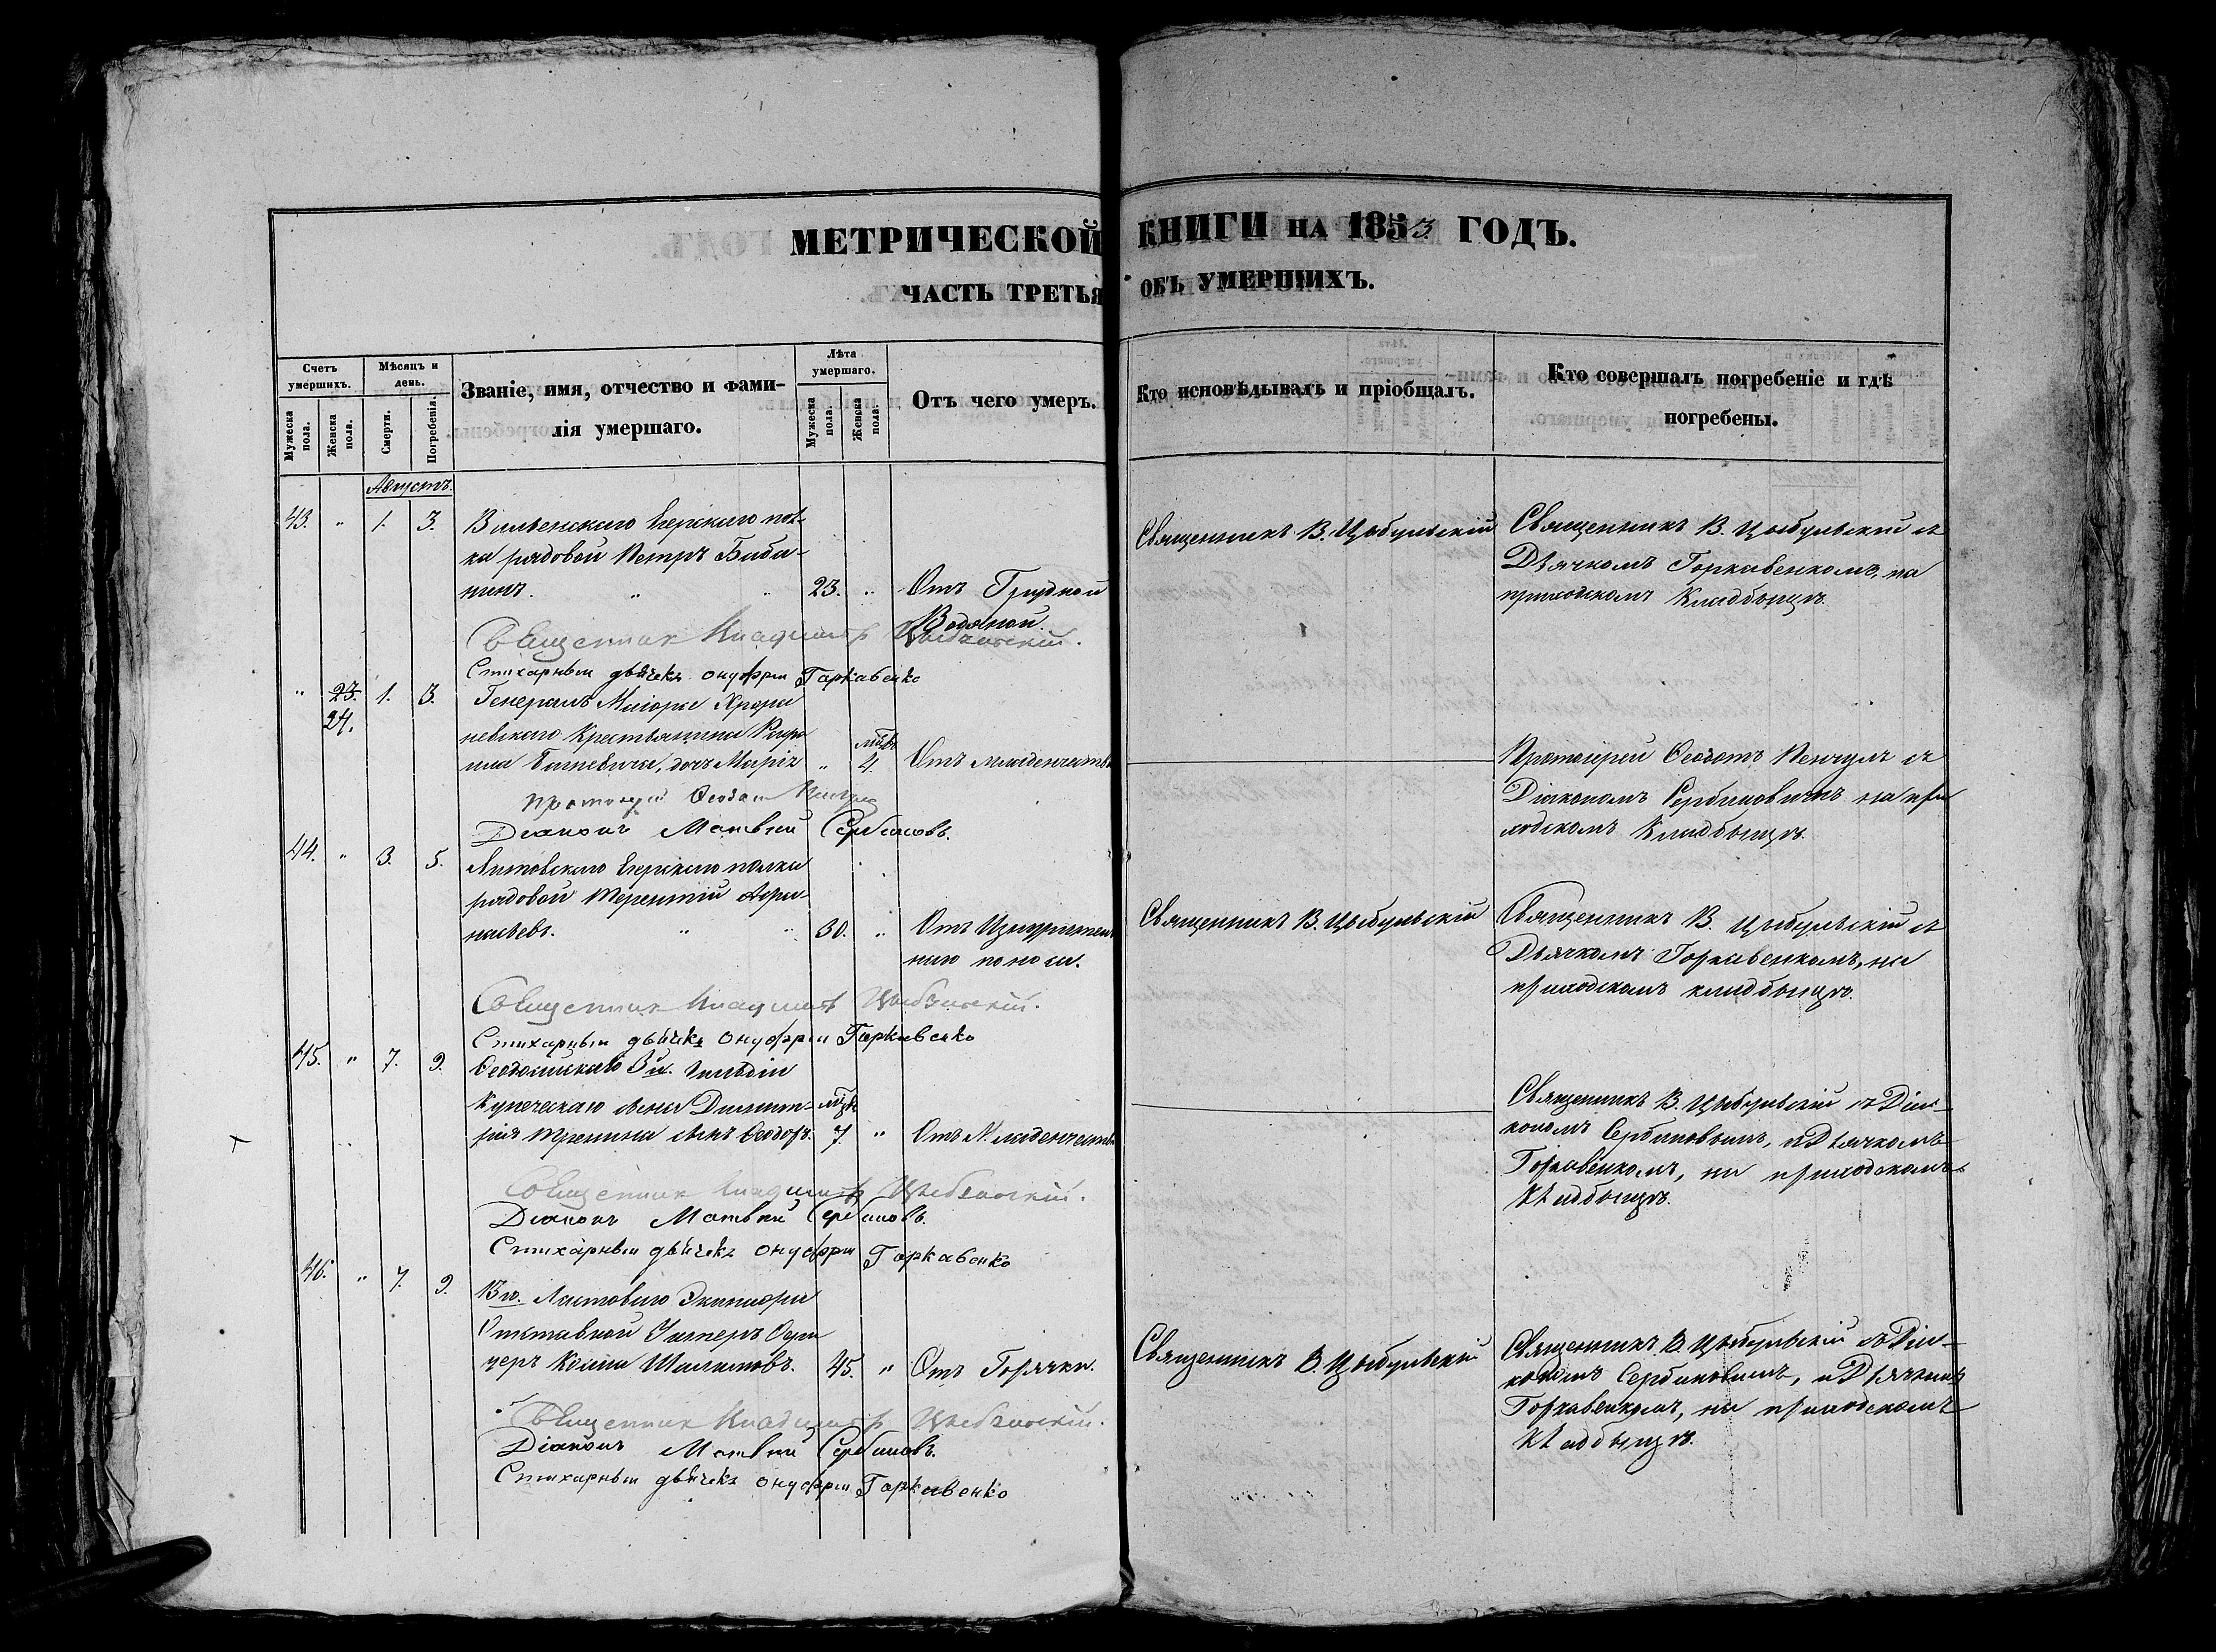 МЕТРИЧЕСКОЙ КНИГИ НА 1853 ГОДЪ.
ЧАСТЬ ТРЕТЬЯ ОБЪ УМЕРШИХЪ.
Счетъ умершихъ.
Мужеска пола.
Женска пола.
Мѣсяцъ и день.
Смерти.
Погребенія.
Званіе, имя, отчество и фами-
лія умершаго.
Лѣта умершаго.
Мужеска пола.
Женска пола.
Отъ чего умеръ.
Кто исповѣдывалъ и пріобщалъ.
Кто совершалъ погребеніе и гдѣ
погребены.
Августъ.
43. " 1. 3. Виленскаго Егерскаго пол-
ка рядовой Петръ Баба-
нинъ. " " 23. " Отъ Грудной
Водяной.
Священникъ В. Цыбульскій
Священникъ В. Цыбульскій съ
Дьячкомъ Горкавенкомъ, на
приходскомъ Кладбищѣ.
Священник Владимір Цыбульскій.
Стихарный дьячекъ Онуфрій Гаркавенко
" 23. 1. 3. Генералъ Маіора
24.
невскаго Крестьянина
дочь Марія " 4. Отъ младенчества
Протоіерей Ѳеодотъ съ
Діакономъ на при
ходскомъ Кладбищѣ.
Протоіерей Ѳеодот
Діаконъ Матвѣй Сербиновъ.
44. " 3. 5. Литовскаго Егерскаго полка
рядовой Терентій Афа-
насьевъ. " " 30. " Отъ Изнурител
наго поноса.
Священникъ В. Цыбульскій
Священникъ В. Цыбульскій съ
Дьячкомъ Горкавенкомъ, на
приходскомъ кладбищѣ.
Священник Владимір Цыбульскій.
Стихарный дьячекъ Онуфрій Гаркавенко
45. " 7. 9. Ѳеодосійскаго 3й. Гильдіи
Купеческаго сына Димит-
рія сынъ Ѳеодоръ. 7. " Отъ Младенчества
Священникъ В. Цыбульскій съ Діа-
кономъ Сербиновымъ, и Дьячкомъ
Горкавенкомъ, на приходскомъ
Кладбищѣ.
Священник Владимір Цыбульскій.
Діаконъ Матвѣй Сербиновъ.
Стихарный дьячекъ Онуфрій Гаркавенко
46. " 7. 9. Ластоваго Экипажа
Отставной Унтеръ Офи
церъ 45. " Отъ Горячки.
Священникъ В. Цыбульскій
Священникъ В. Цыбульскій съ Діа-
кономъ Сербиновымъ, и Дьячкомъ
Горкавенкомъ, на приходскомъ
Кладбищѣ.
Священник Владимір Цыбульскій.
Діаконъ Матвѣй Сербиновъ.
Стихарный дьячекъ Онуфрій Гаркавенко